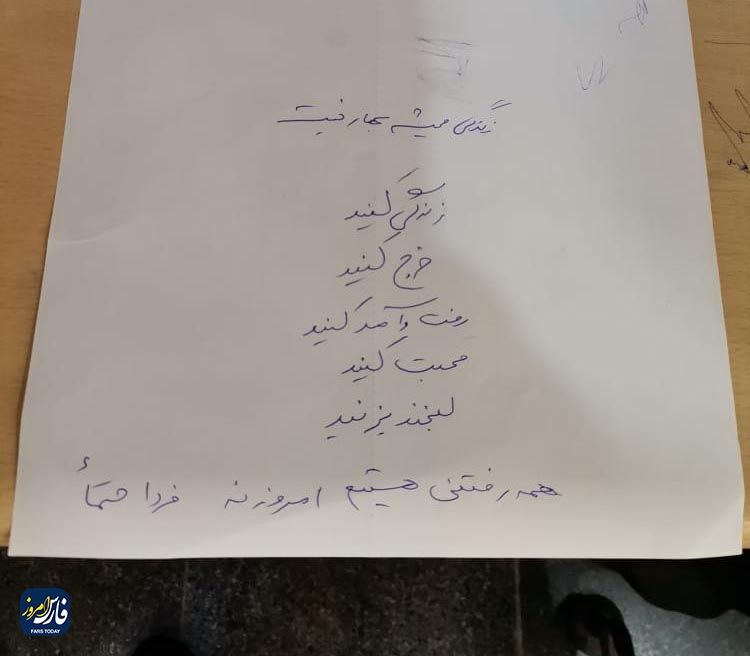 زندگی همیشه بهار نیست
زندگی کنید
خرج کنید
رفت و آمد کنید
محبت کنید
لبخند بزنید
همه رفتنی هستیم امروز نه فردا حتماً
فارس امروز
FARS TODAY